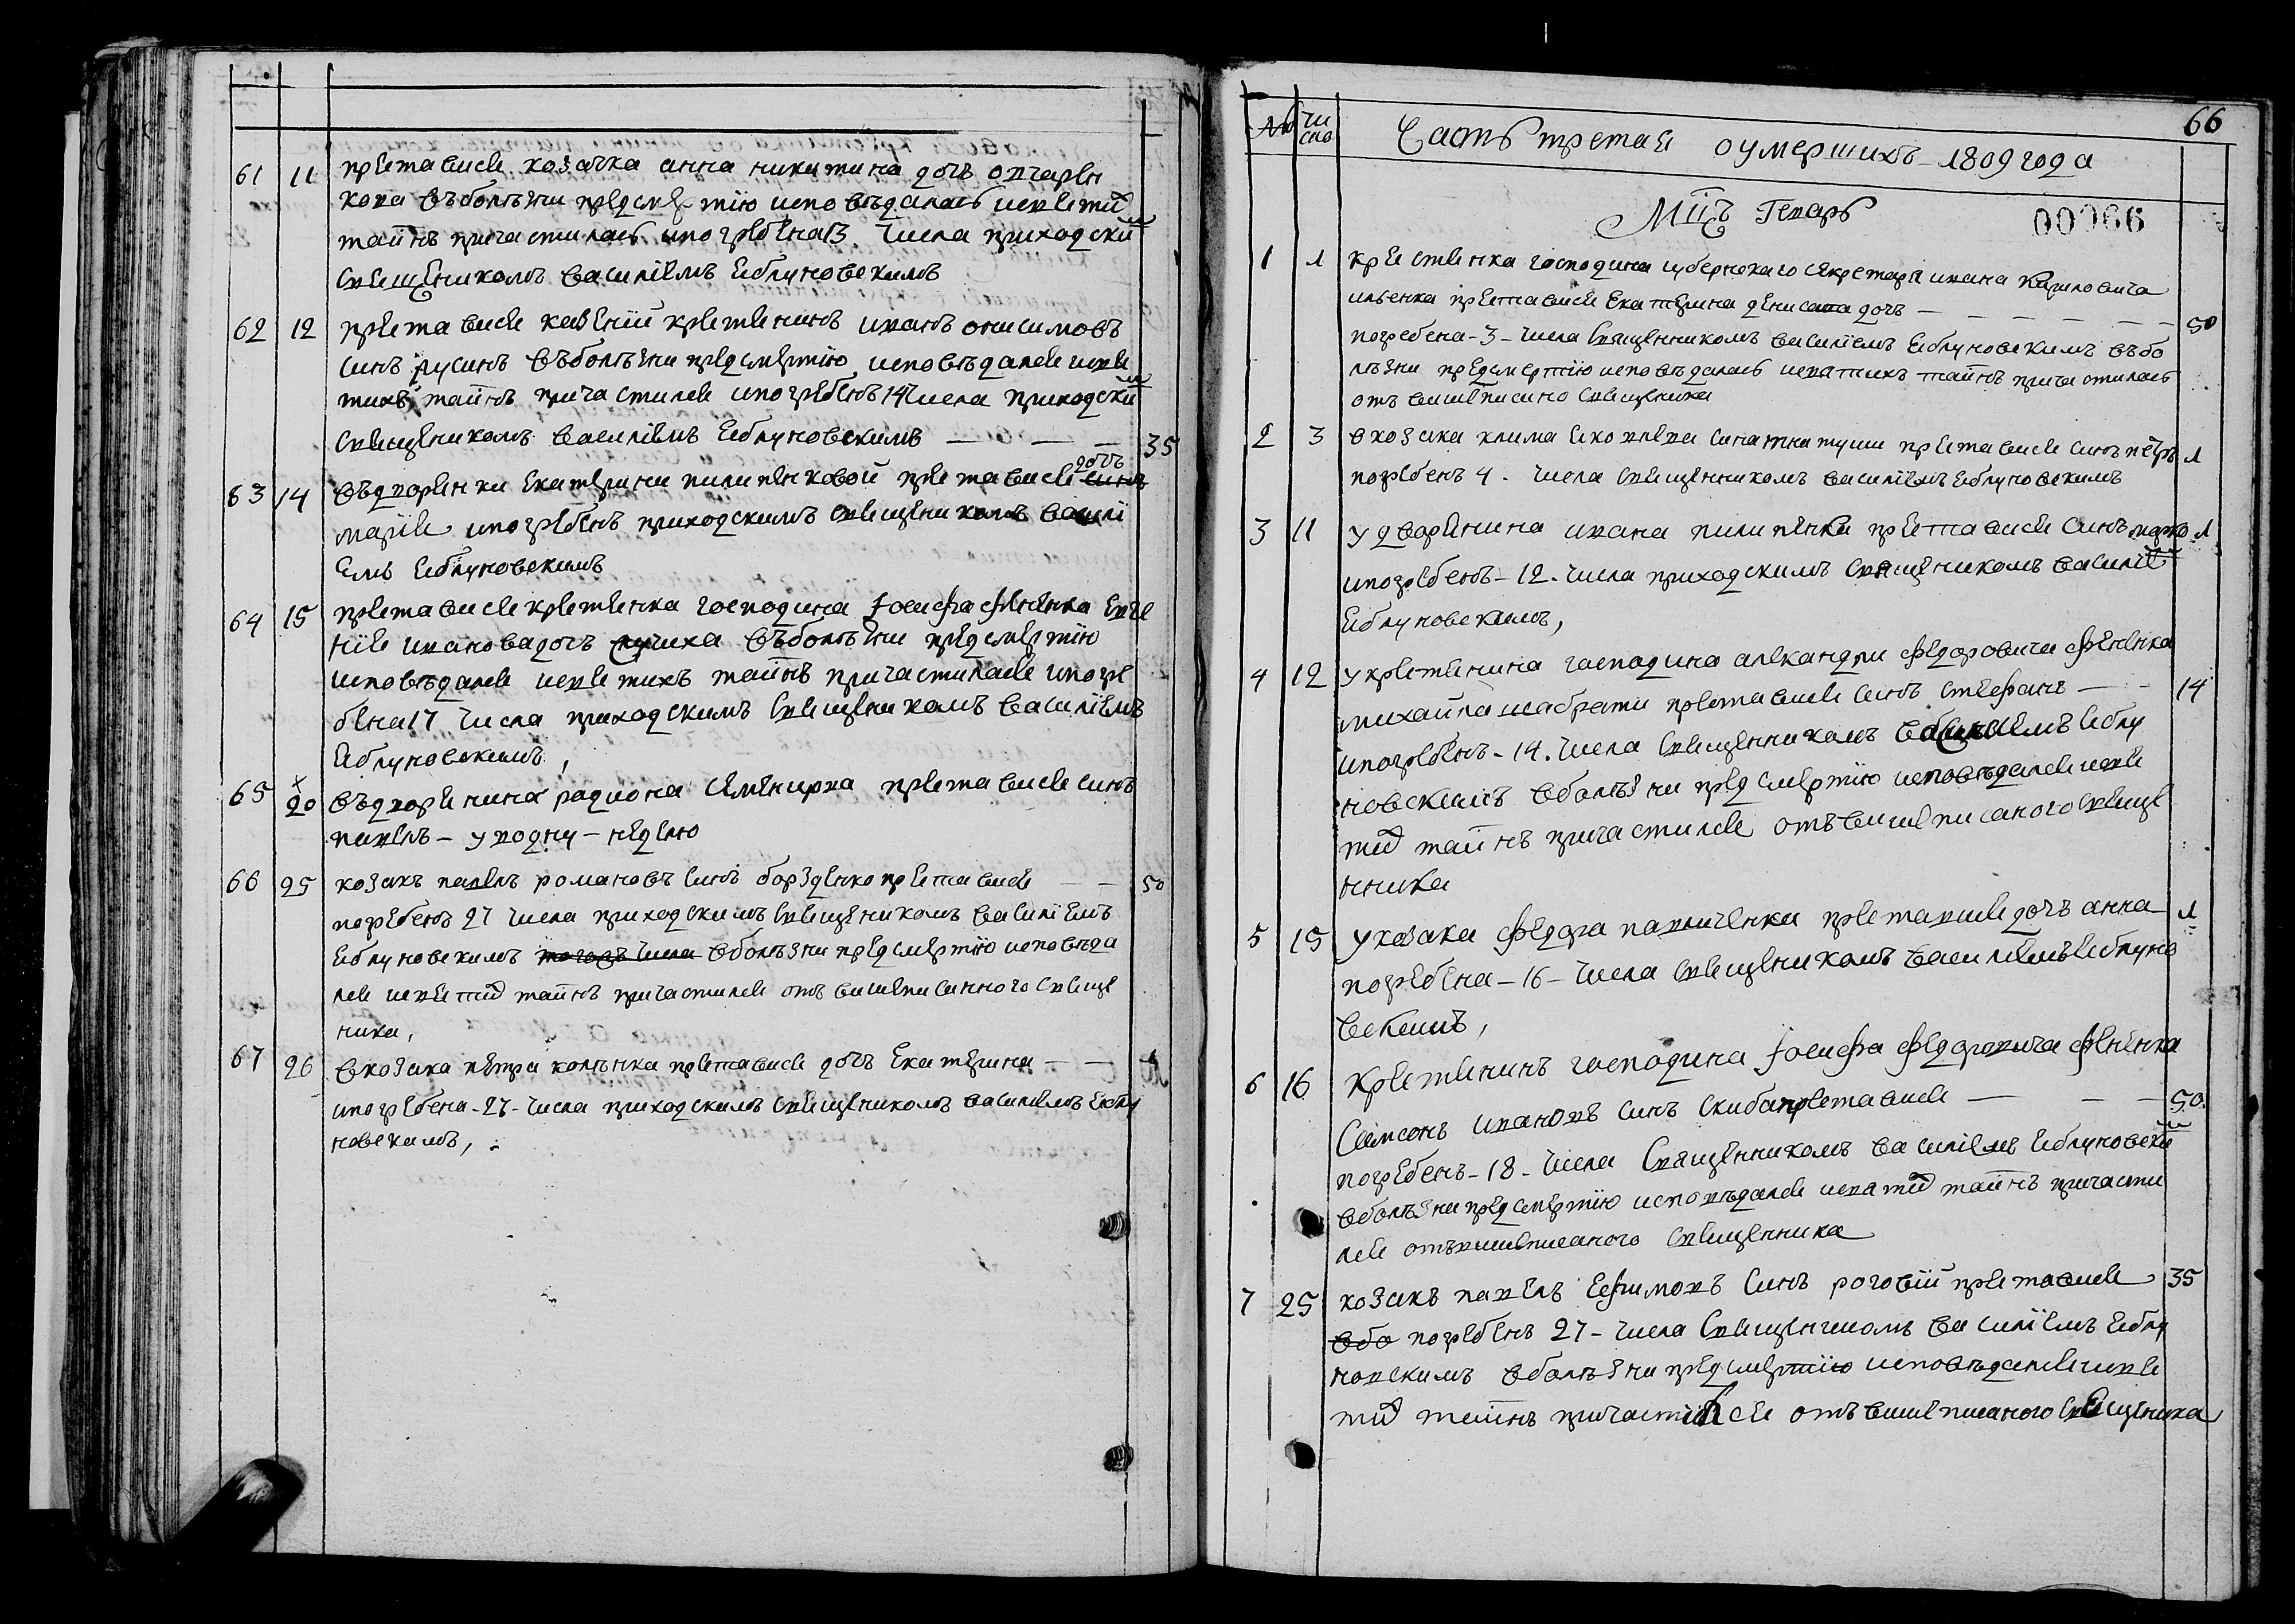 61 11 преставися козачка анна никитина дочь овчарен
кова въболѣзни предсмертію исповѣдалась исвятих
таинъ причастилась ипогребена 13 числа приходским
священикомъ василіемъ яблуновскимъ
62 12 преставися казеній крестянинъ иванъ онисимовъ
синъ русинъ въболѣзни предсмертію исповѣдался исвя
тихъ таинъ причастился ипогребенъ 14 числа приходским
священикомъ василіемъ яблуновскимъ — — — 35
63 14 въдворянки екатерини пилипенковой преставися синъ дочь
марія ипогребенъ приходскимъ священикомъ васили
емъ яблуновскимъ
64 15 преставися крестянка господина іосифа фененка евге
нія иванова дочь въболѣзни предсмертію
исповѣдалася исвятихъ таинъ причастилася ипогре
бена 17 числа приходскимъ священикомъ василіемъ
яблуновскимъ,
65 20 въдворянина радиона преставися синъ
павелъ — уводну — неделю
66 25 козакъ павелъ романовъ синъ борзденко преставися — — 50
погребенъ 27 числа приходскимъ священикомъ василіемъ
яблуновскимъ тогожъ числа вболѣзни предсмертію исповѣда
лся исвятих таинъ причастился отъ вишеписанного священ
ника,
67 26 вкозака петра преставися дочь екатерина — — 1
ипогребена - 27 - числа приходскимъ священикомъ василіемъ яблу
новскимъ,
66
№ чи
сло
Часть третая оумершихъ 1809 года
Мцъ Генварь
00066
1 1 крестянка господина губернскаго секретаря ивана
иленка преставися екатерина денисова дочь — — — — — 50
погребена - 3 - числа священникомъ василіемъ яблуновскимъ въбо
лѣзни предсмертію исповѣдалась исвятихъ таинъ причастилась
отъ вишеписано священика
2 3 вкозака клима яковлева сина преставися синъ петръ 1
погребенъ 4. числа священникомъ василіемъ яблуновскимъ
3 11 удворянина ивана пилипенка преставися синъ марко 1
ипогребенъ - 12. числа приходскимъ священикомъ василіем
яблуновскимъ,
4 12 укрестянина господина александри федоровича фененка
михайла шабрати преставися синъ стефанъ — — 14
ипогребенъ - 14. числа священникомъ василіемъ яблу
новскимъ вболѣзни предсмертію исповѣдался исвя
тих таинъ причастился отъ вишеписаного свяще
нника
5 15 укозака федора павличенка преставися дочь анна 1
погребена - 16 - числа священикомъ василіемъ яблуно
вскимъ,
6 16 крестянинъ господина іосифа федоровича фененка
самсонъ ивановъ синъ скиба преставися — — — 50.
погребенъ - 18 - числа священникомъ василіемъ яблуновским
вболѣзни предсмертію исповѣдался исвятих таинъ причасти
лся отъвишеписаного священника
7 25 козакъ павелъ ефимовъ синъ роговій преставися 35
вбо погребенъ 27 - числа священикомъ василіемъ яблу
новскимъ вболѣзни предсмертію исповѣдался исвя
тих таинъ причастился отъ вишеписаного священика